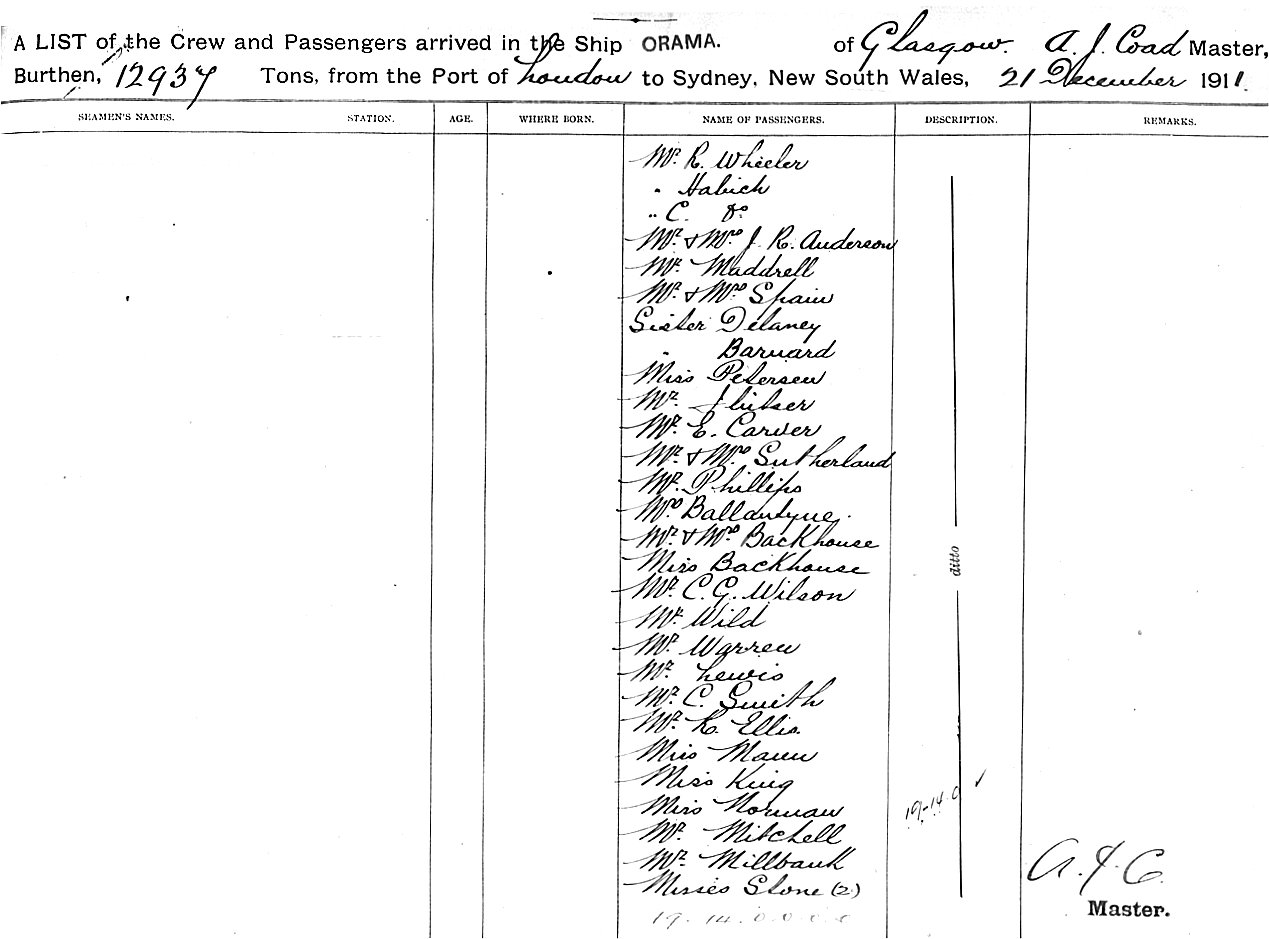 A LIST of the Crew and Passengers arrived in the Ship ORAMA. of Glasgow. A. J. Coad Master,
Burthen, 12937 Tons, from the Port of London to Sydney, New South Wales, 21 December 1911.
SEAMEN'S NAMES. STATION. AGE. WHERE BORN. NAME OF PASSENGERS. DESCRIPTION. REMARKS.
Mr. R. Wheeler
" Habich
" C. Do
Mr. & Mrs J. R. Anderson
Mr. Maddrell
Mr. & Mrs Spain
Sister Delaney
" Barnard
Miss Petersen
Mr.
Mr. E. Carver
Mr. & Mrs Sutherland
Mr. Phillips
Mrs Ballantyne.
Mr. & Mrs Backhouse
ditto
Miss Backhouse
Mr. C. G. Wilson
Mr. Wild
Mr. Warren
Mr. Lewis
Mr. C. Smith
Mr. R. Ellis.
Miss Mann
Miss King
Miss Norman
19-14-0 ✓
Mr. Mitchell
Mr. Millbank
Misses Stone (2)
A. J. C.
Master.
19. 14. 0. 0. 0. 0